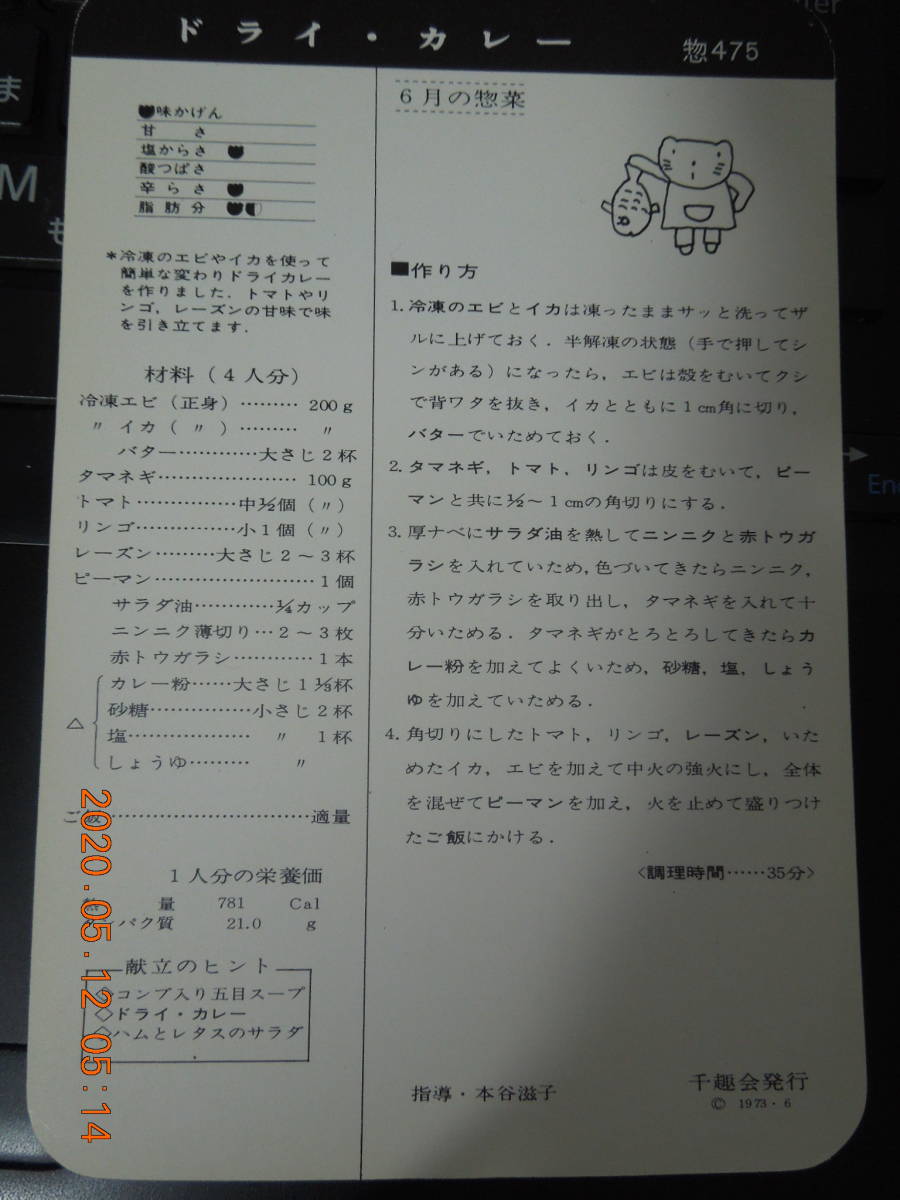 ドライ・カレー
惣475
味かげん
甘さ
塩からさ
酸つぱさ
辛らさ
脂肪分
*冷凍のエビやイカを使って
簡単な変わりドライカレー
を作りました．トマトやリ
ンゴ，レーズンの甘味で味
を引き立てます．
材料（4人分）
冷凍エビ（正身）………200g
〃イカ（〃）………〃
バター…………大さじ2杯
タマネギ……………………100g
トマト……………中½個（〃）
リンゴ……………小1個（〃）
レーズン………大さじ2～3杯
ピーマン……………………1個
サラダ油…………¼カップ
ニンニク薄切り…2～3枚
赤トウガラシ…………1本
カレー粉……大さじ1⅓杯
△
砂糖……………小さじ2杯
塩………………〃 1杯
しょうゆ………〃
ご飯……………………………適量
1人分の栄養価
熱量 781 Cal
タンパク質 21.0 g
献立のヒント
◇コンブ入り五目スープ
◇ドライ・カレー
◇ハムとレタスのサラダ
6月の惣菜
■作り方
1. 冷凍のエビとイカは凍ったままサッと洗ってザ
ルに上げておく．半解凍の状態（手で押してシ
ンがある）になったら，エビは殻をむいてクシ
で背ワタを抜き，イカとともに1cm角に切り，
バターでいためておく．
2. タマネギ，トマト，リンゴは皮をむいて，ピー
マンと共に½～1cmの角切りにする．
3. 厚ナベにサラダ油を熱してニンニクと赤トウガ
ラシを入れていため，色づいてきたらニンニク，
赤トウガラシを取り出し，タマネギを入れて十
分いためる．タマネギがとろとろしてきたらカ
レー粉を加えてよくいため，砂糖，塩，しょう
ゆを加えていためる．
4. 角切りにしたトマト，リンゴ，レーズン，いた
めたイカ，エビを加えて中火の強火にし，全体
を混ぜてピーマンを加え，火を止めて盛りつけ
たご飯にかける．
〈調理時間……35分〉
指導・本谷滋子
千趣会発行
© 1973・6
2020.05.12 05:14
ま
M
も